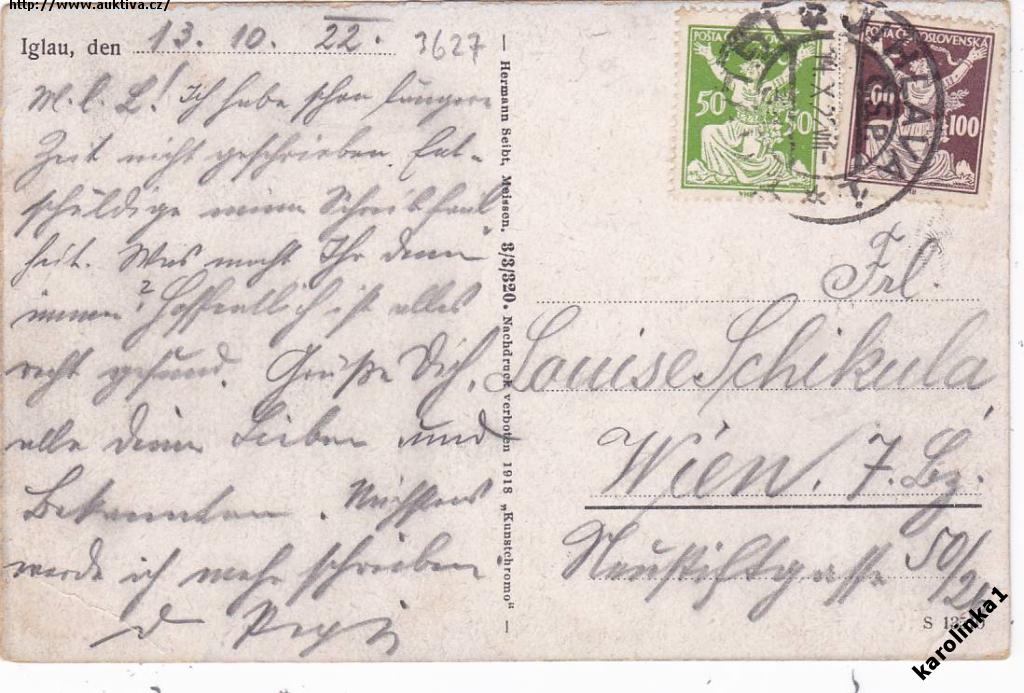 http://www.auktiva.cz/
Iglau, den 13. 10. 22.
3627
M. l. L! Ich habe schon längere
Zeit nicht geschrieben. Ent-
schuldige meine Schreibfaul
heit. Was macht Ihr denn
immer? Hoffentlich ist alles
recht gesund. Grüße Dich,
alle deine Lieben und
Bekannten. Nächstens
werde ich mehr schreiben
— Hermann Seibt, Meissen. 3/3/320. Nachdruck verboten 1918 „Kunstchromo“ —
POŠTA ČESKOSLOVENSKÁ
50 50
POŠTA ČESKOSLOVENSKÁ
100 100
JIHLAVA
Frl.
Louise Schikula
Wien, 7. Bz.
Neustiftgasse 50/
karolinka1